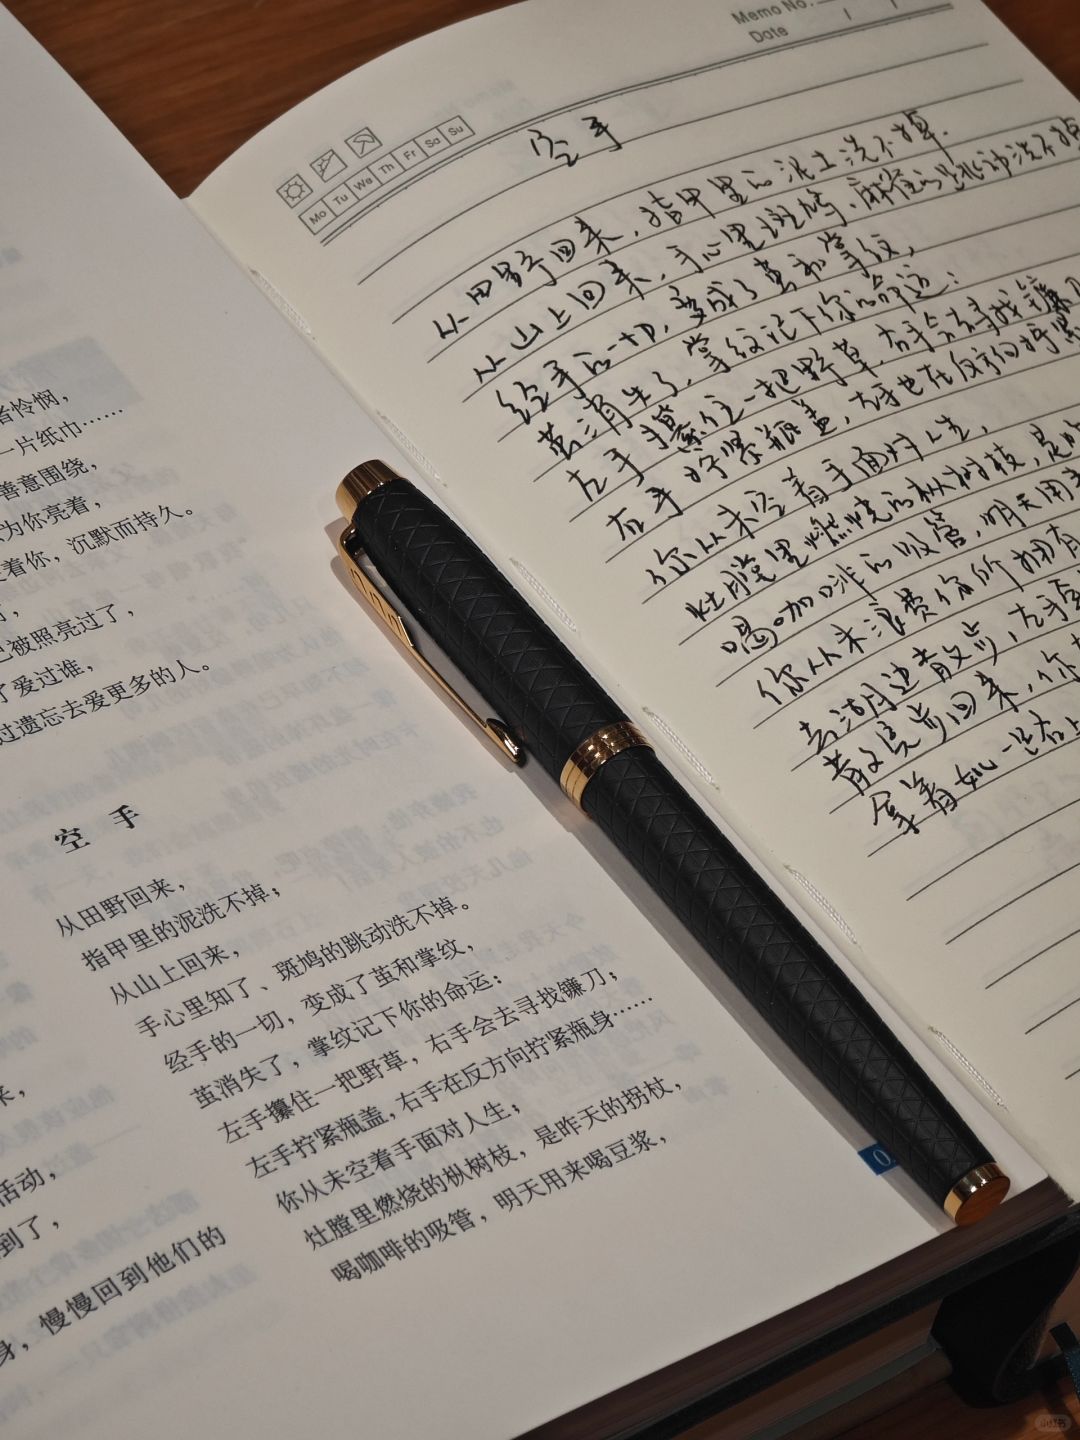 者怜悯，
一片纸巾……
善意围绕，
为你亮着，
着你，沉默而持久。
已被照亮过了，
了爱过谁，
过遗忘去爱更多的人。
空 手
从田野回来，
指甲里的泥洗不掉；
从山上回来，
手心里知了、斑鸠的跳动洗不掉。
经手的一切，变成了茧和掌纹，
茧消失了，掌纹记下你的命运：
左手攥住一把野草，右手会去寻找镰刀；
左手拧紧瓶盖，右手在反方向拧紧瓶身……
你从未空着手面对人生；
灶膛里燃烧的枞树枝，是昨天的拐杖，
喝咖啡的吸管，明天用来喝豆浆，
来，
活动，
到了，
身，慢慢回到他们的
0
Memo No.
Date
Mo Tu We Th Fr Sa Su
空手
从田野回来，指甲里的泥土洗不掉.
从山上回来，手心里斑鸠、麻雀的跳动洗不掉
经手的一切，变成了茧和掌纹，
茧消失了，掌纹记下你的命运：
左手攥住一把野草，右手会去寻找镰刀
右手拧紧瓶盖，左手也在反方向拧紧
你从未空着手面对人生，
灶膛里燃烧的枞树枝，是昨
喝咖啡的吸管，明天用来
你从未浪费你所拥有
去湖边散步，左手
散完步回来，你
拿着如一路上
小红书